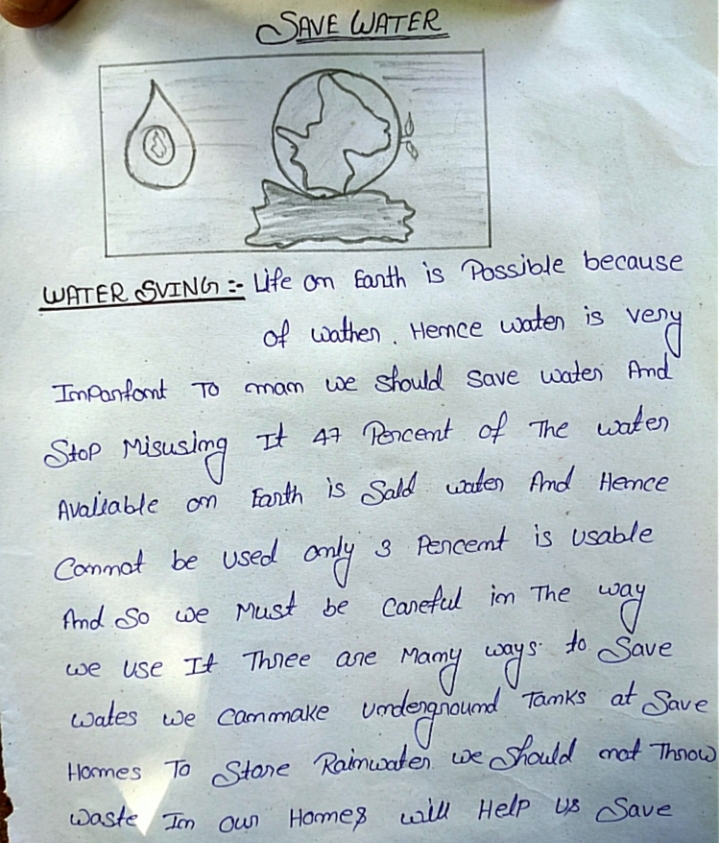 SAVE WATER
WATER SVING :- Life on Earth is Possible because
of wather. Hence water is very
Imporfont To man we should save water And
Stop Misusing It 47 Percent of The water
Avaliable on Earth is Sald water And Hence
Connot be used only 3 Percent is usable
And So we Must be careful in The way
we use It Three are Many ways to Save
wates we canmake underground Tanks at Save
Homes To Store Rainwater we should not Throw
waste In our Homes will Help us Save